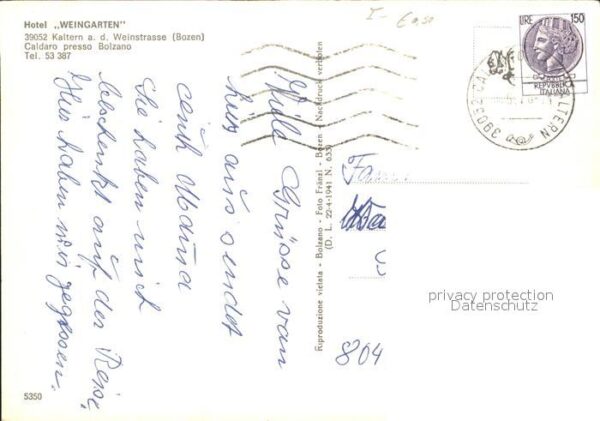 Hotel „WEINGARTEN"
39052 Kaltern a. d. Weinstrasse (Bozen)
Caldaro presso Bolzano
Tel. 53 387
I- €0,50
LIRE 150
REPVBBLICA
ITALIANA
39052 CAL KALTERN
Viele Grüsse von
hier aus sendet
euch Mama
Sie haben mich
beschenkt auf der Reise,
Hier haben wir gegessen.
Riproduzione vietata - Bolzano - Foto Fränzl - Bozen - Nachdruck verboten
(D. L. 22-4-1941 N. 633)
Fam
804
privacy protection
Datenschutz
5350